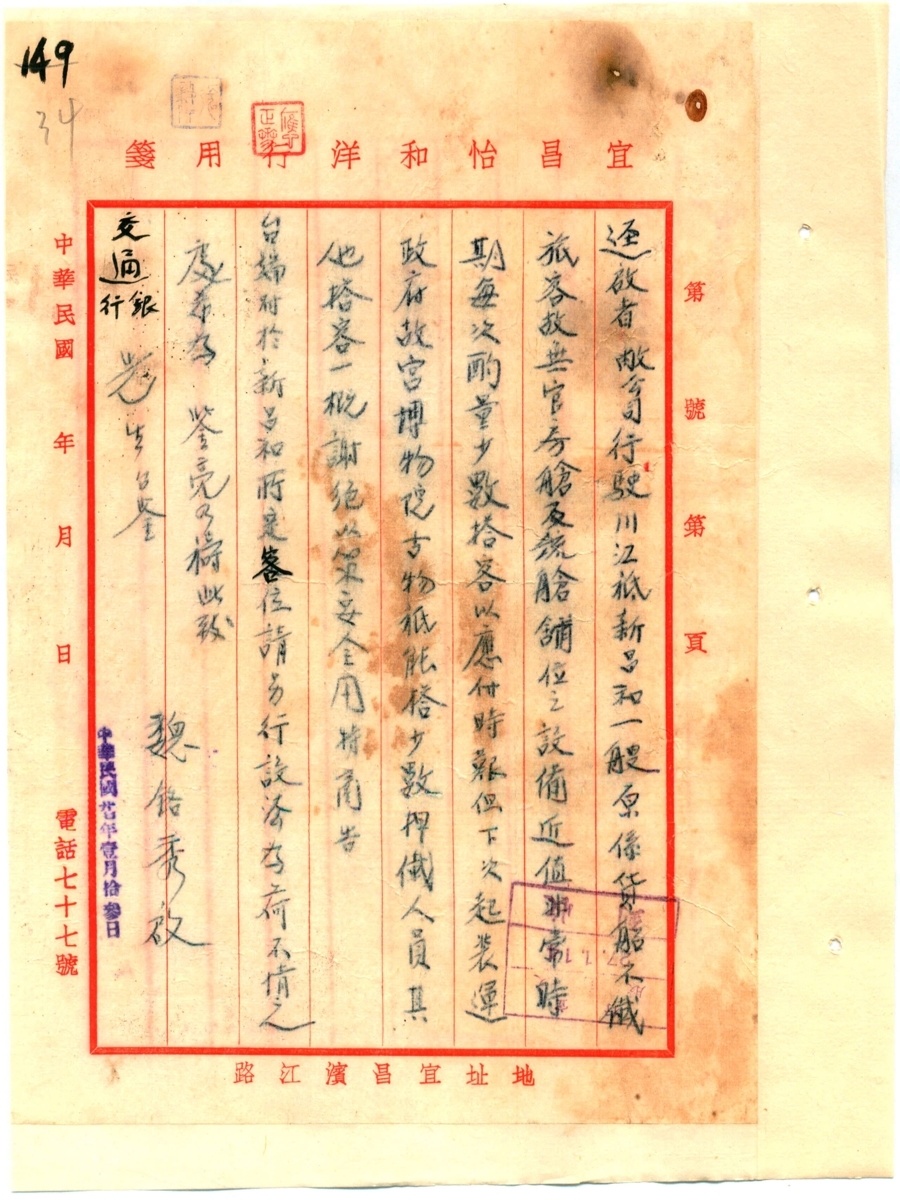 149
34
宜昌怡和洋行用箋
第 號 第 頁
逕啟者敝公司行駛川江祇新昌和一艘原係貨船不儎
旅客故無官房艙及統艙舖位之設備近值非常時
期每次酌量少數搭客以應付時艱但下次起裝運
政府故宮博物院古物祇能搭少數押儎人員其
他搭客一概謝絕以策安全用特甫告
台端對於新昌和所定客位請另行設法為荷不情之
處希為 鑒亮乃禱此致
交通銀行
先生台鑒
魏銘秀啟
中華民國廿七年壹月拾參日
中華民國 年 月 日
電話七十七號
地址宜昌濱江路